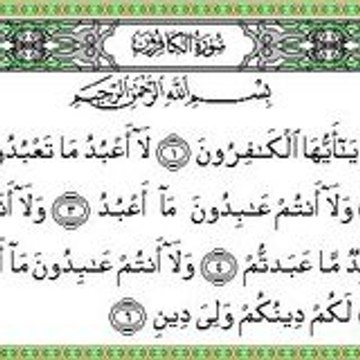 سُورَةُ الكَافِرُونَ
بِسْمِ اللَّهِ الرَّحْمَٰنِ الرَّحِيمِ
يَٰٓأَيُّهَا ٱلْكَٰفِرُونَ ١ لَآ أَعْبُدُ مَا تَعْبُدُو
وَلَآ أَنتُمْ عَٰبِدُونَ مَآ أَعْبُدُ ٣ وَلَآ أَنَا
مَّا عَبَدتُّمْ ٤ وَلَآ أَنتُمْ عَٰبِدُونَ مَآ
لَكُمْ دِينُكُمْ وَلِىَ دِينِ ٦